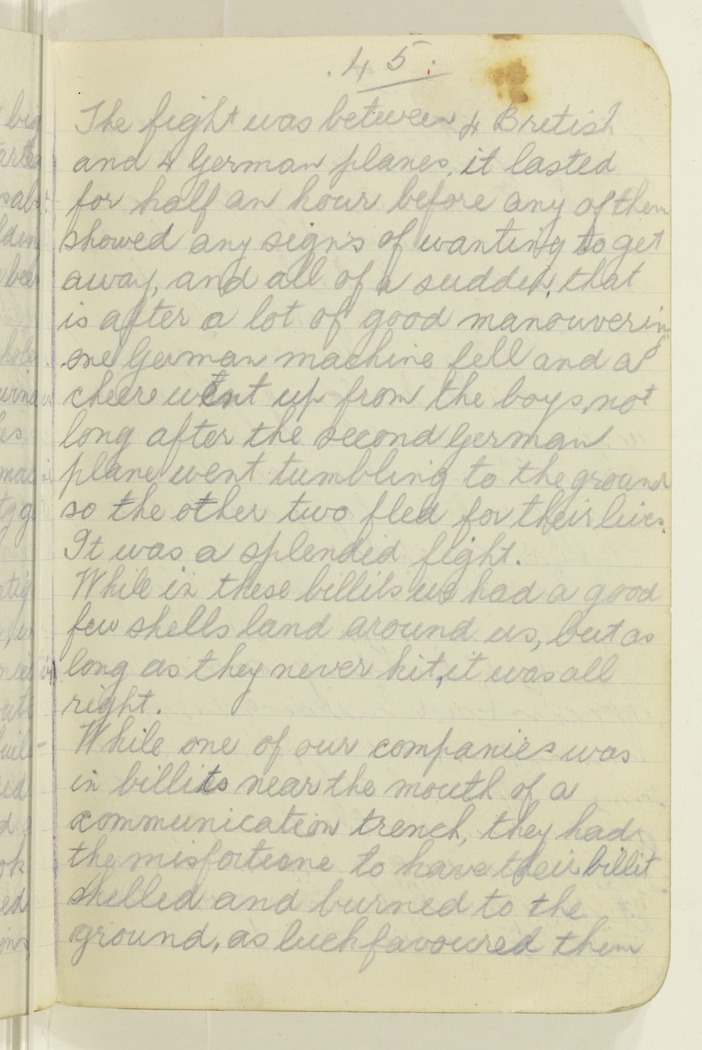 . 45.
The fight was between 4 British
and 4 German planes, it lasted
for half an hour before any of them
showed any signs of wanting to get
away, and all of a sudden, that
is after a lot of good manouvering
one German machine fell and a
cheere went up from the boys, not
long after the second German
plane went tumbling to the ground
so the other two fled for their lives.
It was a splended fight.
While in these billits we had a good
few shells land around us, but as
long as they never hit, it was all
right.
While one of our companies was
in billits near the mouth of a
communication trench, they had
the misfortune to have their billit
shelled and burned to the
ground, as luck favoured them